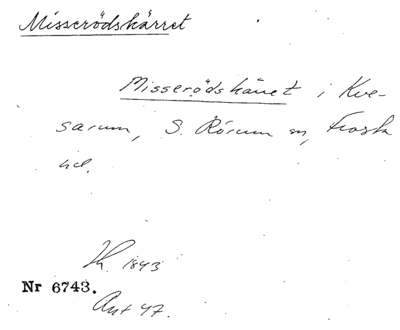 Misserödskärret
Misserödskärret i Kve-
sarum, S. Rörum sn, Frosta
hd.
Kr. 1843
Nr 6743.
Ant 47.